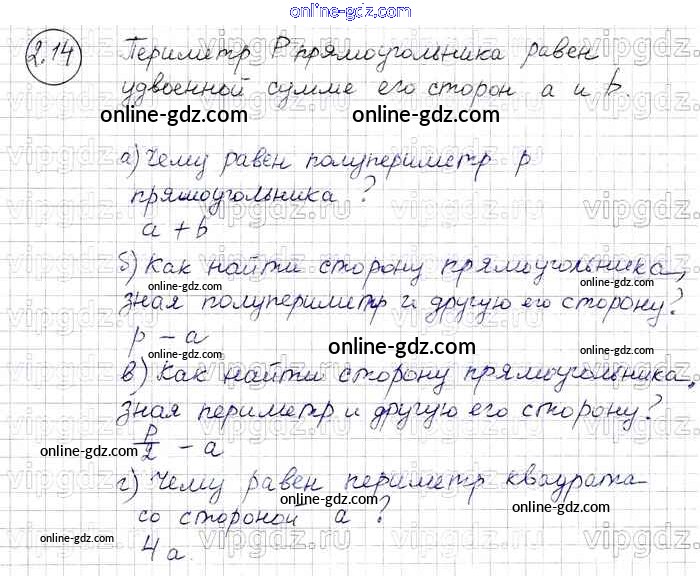 online-gdz.com
2.14 Периметр P прямоугольника равен
удвоенной сумме его сторон a и b.
online-gdz.com online-gdz.com
а) Чему равен полупериметр p
прямоугольника?
online-gdz.com
a + b
б) Как найти сторону прямоугольника,
online-gdz.com
зная полупериметр и другую его сторону?
p - a
online-gdz.com online-gdz.com
в) Как найти сторону прямоугольника,
online-gdz.com
зная периметр и другую его сторону?
P/2 - a
online-gdz.com online-gdz.com
г) Чему равен периметр квадрата
online-gdz.com
со стороной a?
online-gdz.com online-gdz.com
4a.
vipgdz.ru